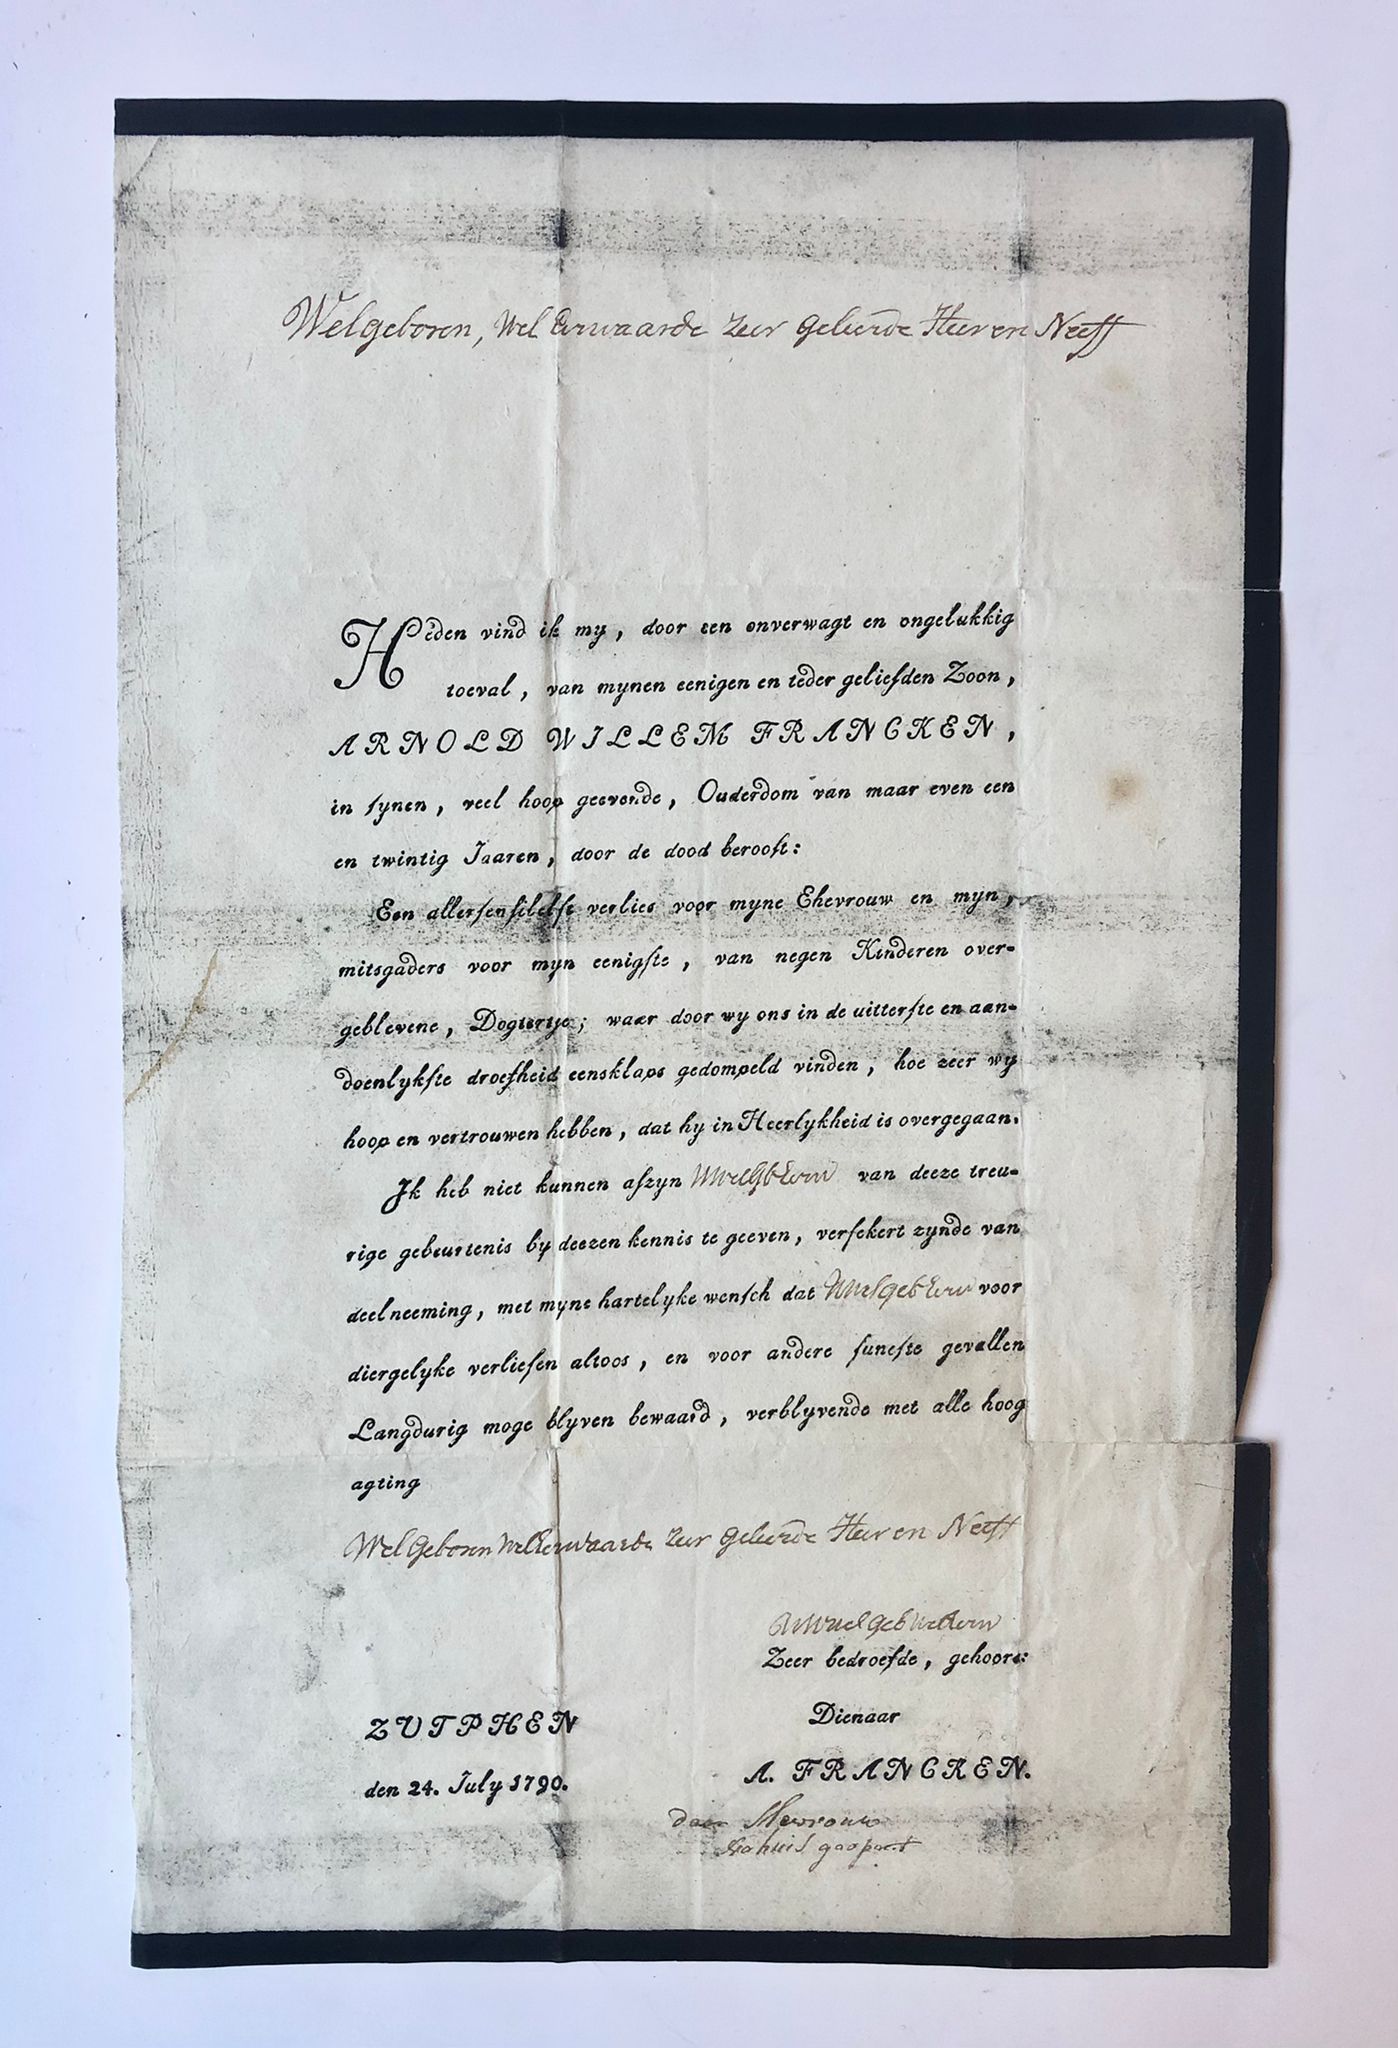 Welgeboren, Wel Eerwaarde Zeer Geleerde Heer en Neeff
Heden vind ik my, door een onverwagt en ongelukkig
toeval, van mynen eenigen en teder geliefden Zoon,
ARNOLD WILLEM FRANCKEN,
in synen, veel hoop geevende, Ouderdom van maar even een
en twintig Jaaren, door de dood berooft:
Een allersensibelst verlies voor myne Ehevrouw en myn,
mitsgaders voor myn eenigste, van negen Kinderen over-
geblevene, Dogtertje; waar door wy ons in de uitterste en aan-
doenlykste droefheid eensklaps gedompeld vinden, hoe zeer wy
hoop en vertrouwen hebben, dat hy in Heerlykheid is overgegaan.
Ik heb niet kunnen afzyn UWelGbEerw van deeze treu-
rige gebeurtenis by deezen kennis te geeven, versekert zynde van
deelneeming, met myne hartelyke wensch dat UWelgebEerw voor
diergelyke verliesen altoos, en voor andere funeste gevallen
Langdurig moge blyven bewaard, verblyvende met alle hoog
agting
WelGeboren WelEerwaarde Zeer Geleerde Heer en Neeff
Zeer bedroefde, gehoors:
Dienaar
ZUTPHEN
A. FRANCKEN.
den 24. July 1790.
Mevrouw